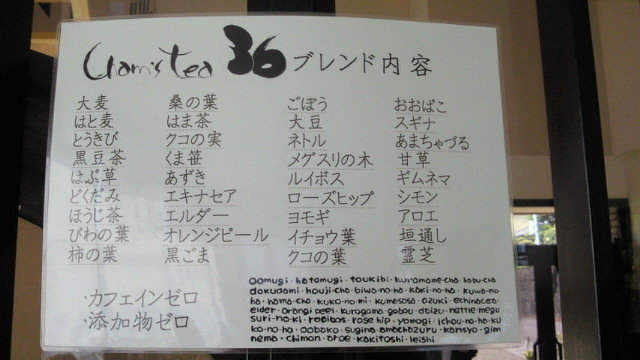 Cham's Tea 36 ブレンド内容
大麦
はと麦
とうきび
黒豆茶
はぶ草
どくだみ
ほうじ茶
びわの葉
柿の葉
桑の葉
はま茶
クコの実
くま笹
あずき
エキナセア
エルダー
オレンジピール
黒ごま
ごぼう
大豆
ネトル
メグスリの木
ルイボス
ローズヒップ
ヨモギ
イチョウ葉
クコの葉
おおばこ
スギナ
あまちゃづる
甘草
ギムネマ
シモン
アロエ
垣通し
霊芝
・カフェインゼロ
・添加物ゼロ
oomugi・hatomugi・toukibi・kuromame-cha・habu-cha
dokudami・houji-cha・biwa-no-ha・kaki-no-ha・kuwa-no-
ha・hama-cha・kuko-no-mi・kumasasa・azuki・echinacea
elder・orangi peel・kurogoma・gobou・daizu・nattle megu
suri-no-ki・rooibos・rose hip・yomogi・ichou-no-ha・ku
ko-no-ha・oobako・sugina amachazuru・kansyo・gim
nema・chimon・aroe・kakitoshi・leishi